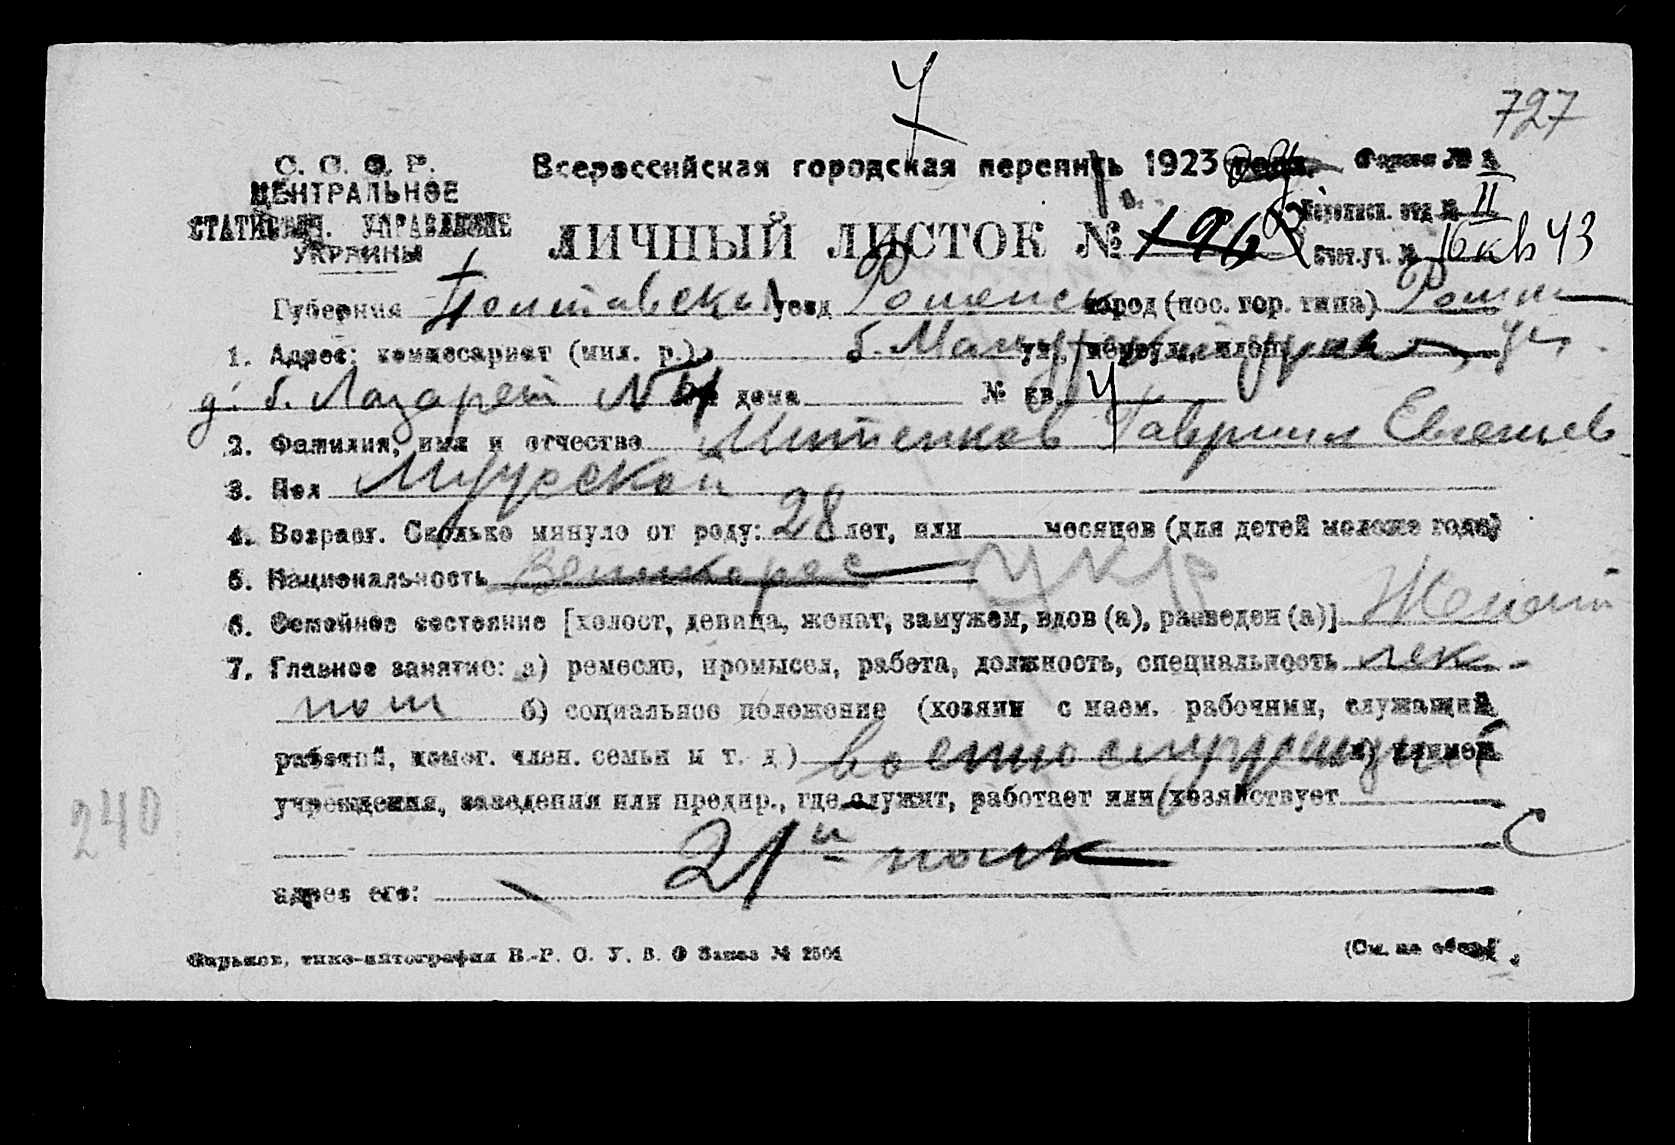 727
С. С. С. Р.
ЦЕНТРАЛЬНОЕ
СТАТИСТИЧ. УПРАВЛЕНИЕ
УКРАИНЫ
Всероссийская городская перепись 1923 года.
Форма № 1
Переписн. отд. № II
ЛИЧНЫЙ ЛИСТОК №
Счет. уч. № 16 кв 43
Губерния Полтавская уезд Роменск город (пос. гор. типа) Ромны
1. Адрес: комиссариат (мил. р.) ул., переул., площ.
д. б. Лазарет № дома № кв. 4
2. Фамилия, имя и отчество Митенков Гавриил Евгеньев
3. Пол Мужской
4. Возраст. Сколько минуло от роду: 28 лет, или месяцев (для детей моложе года)
5. Национальность Великорос укр
6. Семейное состояние [холост, девица, женат, замужем, вдов (а), разведен (а)] Женат
7. Главное занятие: а) ремесло, промысел, работа, должность, специальность лек-
пом б) социальное положение (хозяин с наем. рабочими, служащий,
рабочий, помог. член. семьи и т. д.) военнослужащий
учреждения, заведения или предпр., где служит, работает или хозяйствует
21й полк
240
адрес его:
Харьков, типо-литография В.-Р. О. У. В. О Заказ № 2501
(См. на обор.)